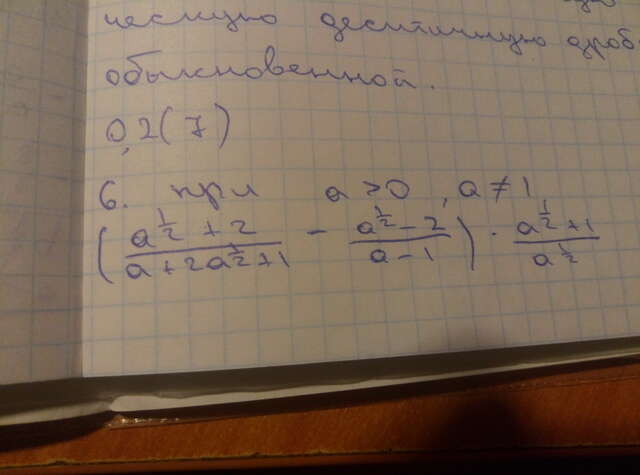 ческую десятичную дроб
обыкновенной.
0,2(7)
6. при a > 0, a ≠ 1
(a^(1/2) + 2)/(a + 2a^(1/2) + 1) - (a^(1/2) - 2)/(a - 1)) · (a^(1/2) + 1)/a^(1/2)